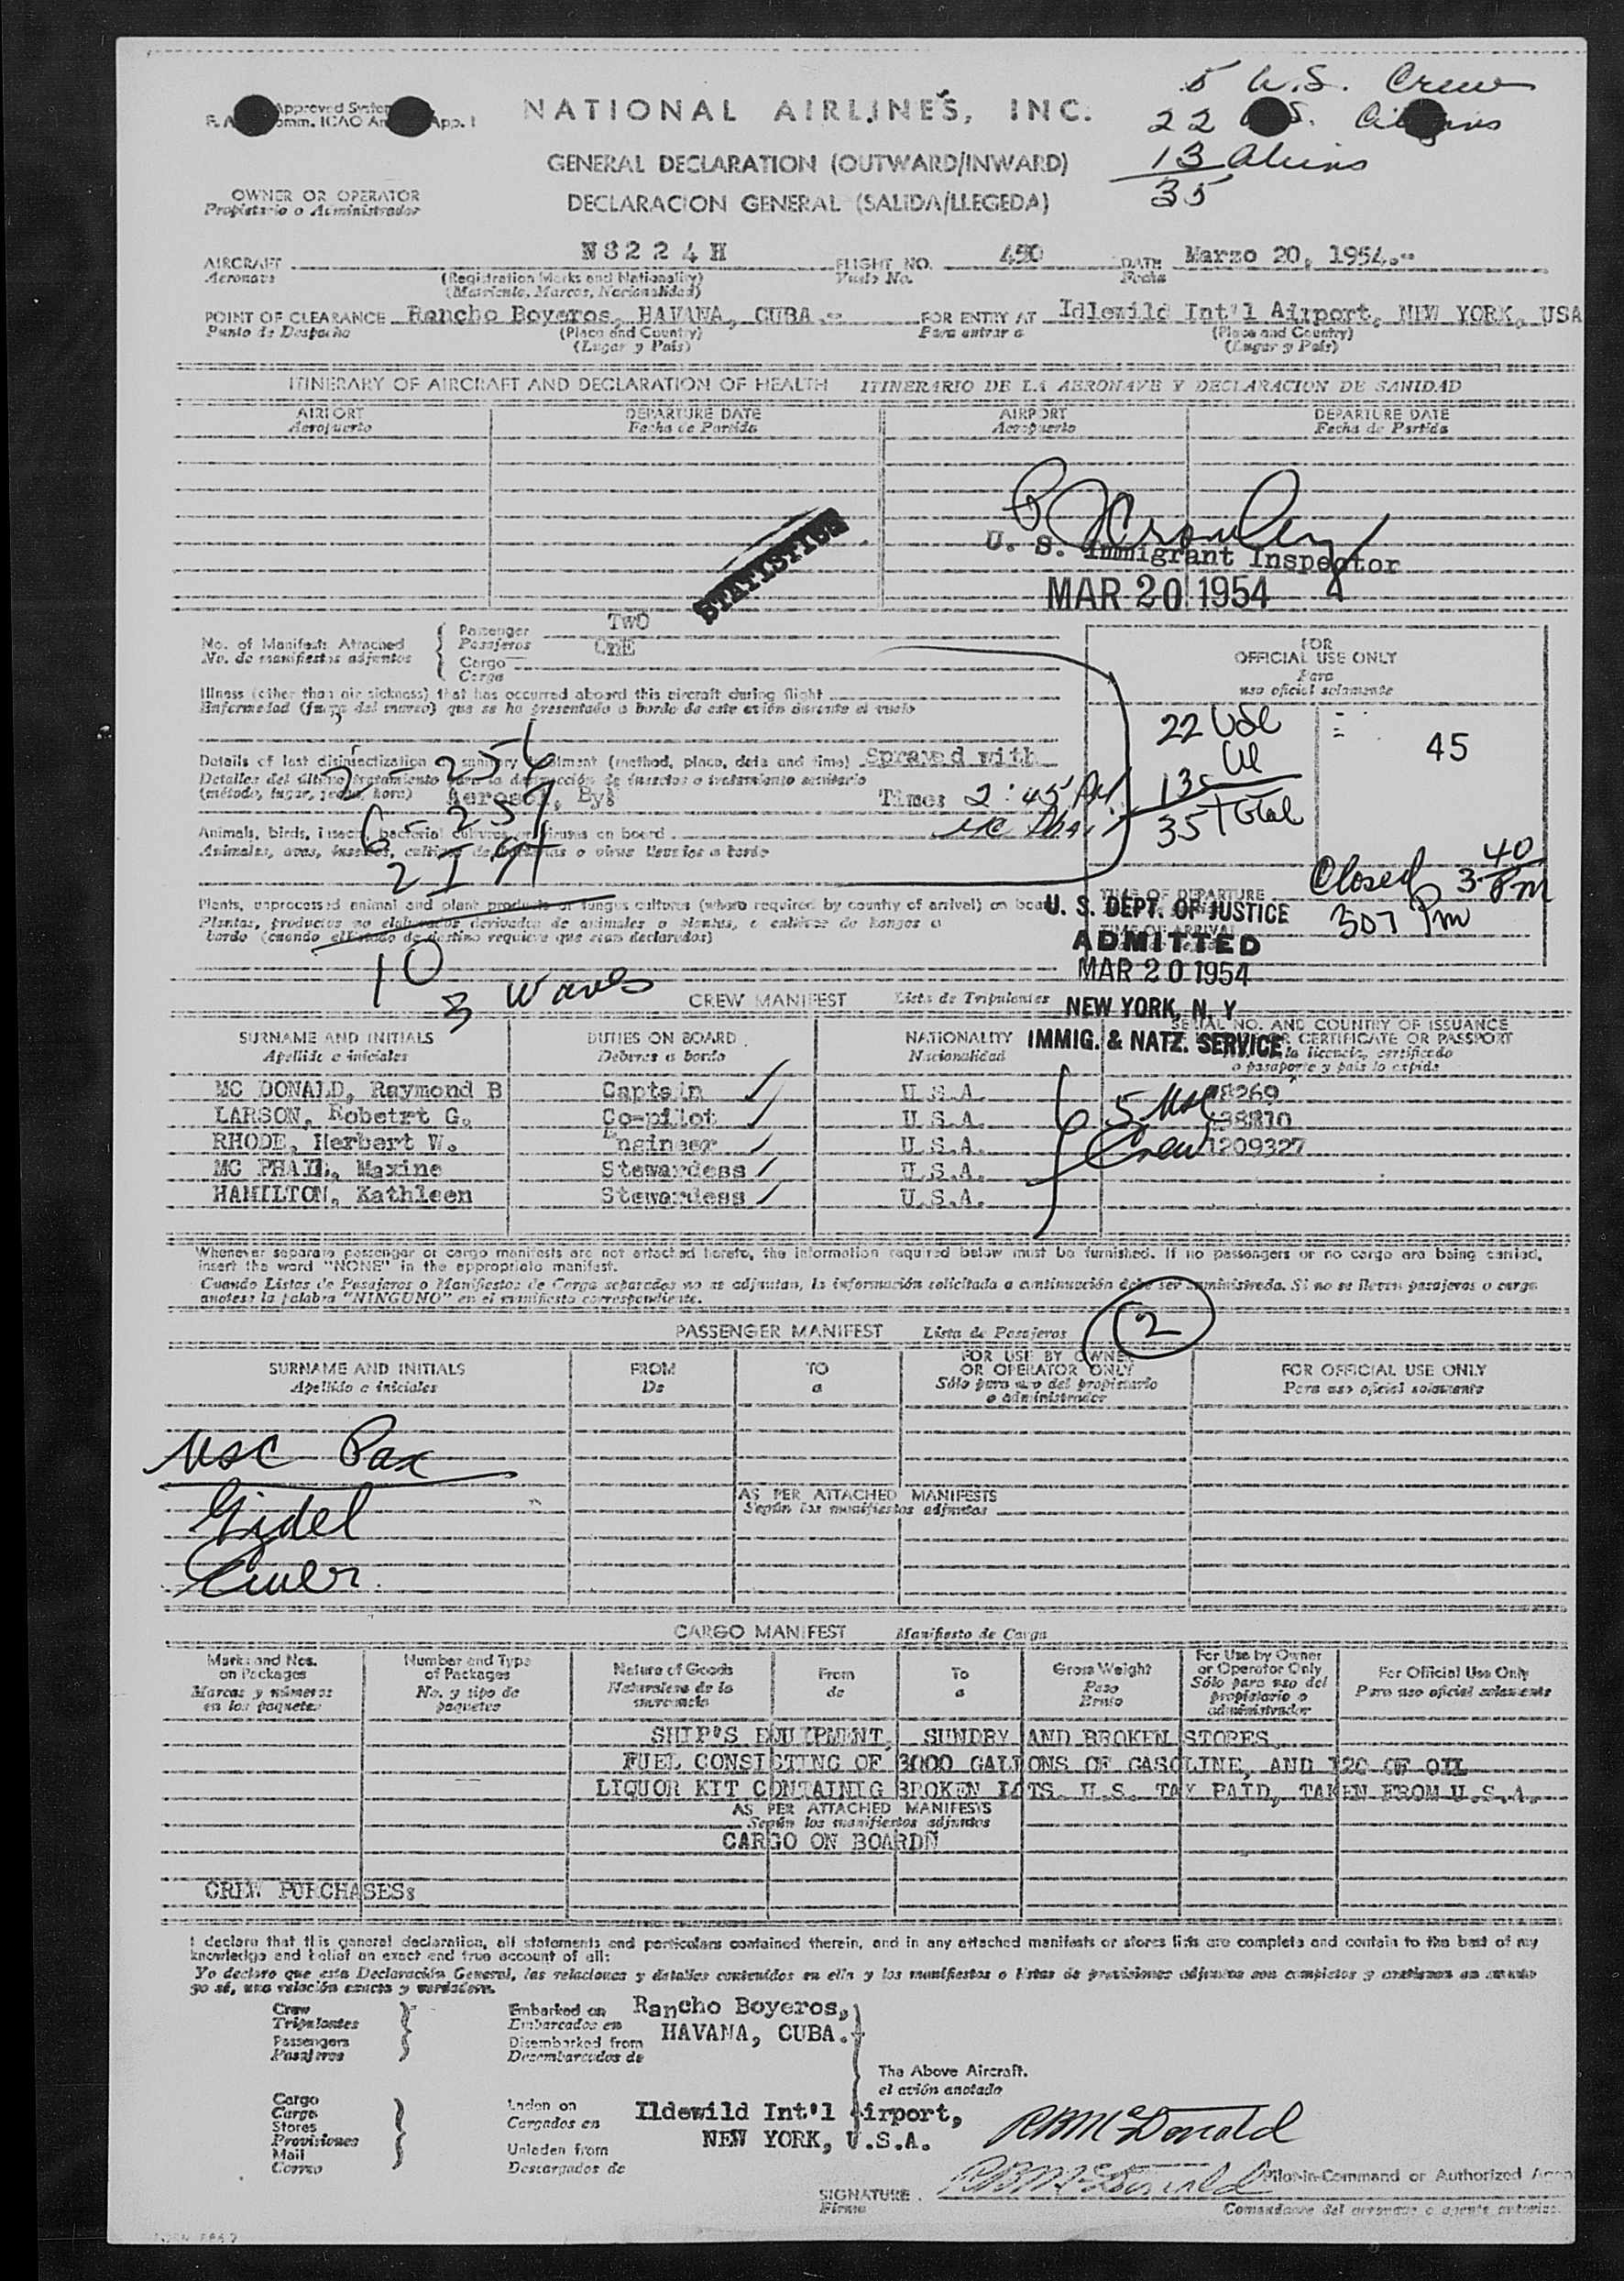 Approved System
5 U.S. Crew
F. A. Comm. ICAO An App. I
NATIONAL AIRLINES, INC.
22 U.S. Citizens
GENERAL DECLARATION (OUTWARD/INWARD)
13 Aliens
OWNER OR OPERATOR
DECLARACION GENERAL (SALIDA/LLEGEDA)
35
Propietario o Administrador
AIRCRAFT N8224H FLIGHT NO. 450 DATE Marzo 20, 1954.--
Aeronave (Registration Marks and Nationality) Vuelo No. Fecha
(Matricula, Marcas, Nacionalidad)
POINT OF CLEARANCE Rancho Boyeros, HAVANA, CUBA.-- FOR ENTRY AT Idlewild Int'l Airport, NEW YORK, USA
Punto de Despacho (Place and Country) Para entrar a (Place and Country)
(Lugar y Pais) (Lugar y Pais)
ITINERARY OF AIRCRAFT AND DECLARATION OF HEALTH ITINERARIO DE LA AERONAVE Y DECLARACION DE SANIDAD
AIRPORT DEPARTURE DATE AIRPORT DEPARTURE DATE
Aeropuerto Fecha de Partida Aeropuerto Fecha de Partida
STATISTICS
U. S. Immigrant Inspector
MAR 20 1954
No. of Manifests Attached Passenger TwO
No. de manifiestos adjuntos Pasajeros OnE
Cargo
Carga
FOR
OFFICIAL USE ONLY
Para
uso oficial solamente
Illness (other than air sickness) that has occurred aboard this aircraft during flight
Enfermedad (fuera del mareo) que se ha presentado a bordo de este avión durante el vuelo
22 USC
45
Details of last disinsectization or sanitary treatment (method, place, date and time) Sprayed with
Detalles del último tratamiento para la destrucción de insectos o tratamiento sanitario
(método, lugar, fecha, hora) Aerosol, By: Time: 2:45 PM
35 Total
Animals, birds, insects, bacterial cultures or viruses on board
Animales, aves, insectos, cultivos de bacterias o virus llevados a bordo
Closed 3 40 PM
Plants, unprocessed animal and plant products or fungus cultures (where required by country of arrival) on board
Plantas, productos no elaborados derivados de animales o plantas, o cultivos de hongos a
bordo (cuando el Estado de destino requiere que sean declarados)
TIME OF DEPARTURE
U. S. DEPT. OF JUSTICE
307 Pm
TIME OF ARRIVAL
ADMITTED
MAR 20 1954
NEW YORK, N. Y.
IMMIG. & NATZ. SERVICE
10
3 Waves
CREW MANIFEST Lista de Tripulantes
SURNAME AND INITIALS DUTIES ON BOARD NATIONALITY SERIAL NO. AND COUNTRY OF ISSUANCE
CERTIFICATE OR PASSPORT
Apellido e iniciales Deberes a bordo Nacionalidad la licencia, certificado
o pasaporte y país lo expide
MC DONALD, Raymond B Captain U.S.A. 8269
LARSON, Robetrt G. Co-pilot U.S.A. 5 USC 38810
RHODE, Herbert W. Engineer U.S.A. Crew 1209327
MC PHAIL, Maxine Stewardess U.S.A.
HAMILTON, Kathleen Stewardess U.S.A.
Whenever separate passenger or cargo manifests are not attached hereto, the information required below must be furnished. If no passengers or no cargo are being carried,
insert the word "NONE" in the appropriate manifest.
Cuando Listas de Pasajeros o Manifiestos de Carga separados no se adjuntan, la información solicitada a continuación debe ser suministrada. Si no se llevan pasajeros o carga
anotese la palabra "NINGUNO" en el manifiesto correspondiente.
PASSENGER MANIFEST Lista de Pasajeros 2
SURNAME AND INITIALS FROM TO FOR USE BY OWNER OR OPERATOR ONLY FOR OFFICIAL USE ONLY
Apellido e iniciales De a Sólo para uso del propietario o administrador Para uso oficial solamente
USC Pax
AS PER ATTACHED MANIFESTS
Según los manifiestos adjuntos
Gidel
CARGO MANIFEST Manifiesto de Carga
Marks and Nos. on Packages Number and Type of Packages Nature of Goods From To Gross Weight For Use by Owner or Operator Only For Official Use Only
Marcas y números en los paquetes No. y tipo de paquetes Naturaleza de la mercancia de a Peso Bruto Sólo para uso del propietario o administrador Para uso oficial solamente
SHIP'S EQUIPMENT, SUNDRY AND BROKEN STORES
FUEL CONSISTING OF 3000 GALLONS OF GASOLINE, AND 120 OF OIL
LIQUOR KIT CONTAINIG BROKEN LOTS. U.S. TAX PAID, TAKEN FROM U.S.A.
AS PER ATTACHED MANIFESTS
Según los manifiestos adjuntos
CARGO ON BOARDÑ
CREW PURCHASES:
I declare that this general declaration, all statements and particulars contained therein, and in any attached manifests or stores lists are complete and contain to the best of my
knowledge and belief an exact and true account of all:
Yo declaro que esta Declaración General, las relaciones y detalles contenidos en ella y los manifiestos o listas de provisiones adjuntos son completos y contienen en cuanto
yo sé, una relación exacta y verdadera.
Crew Embarked on Rancho Boyeros,
Tripulantes Embarcados en HAVANA, CUBA.
Passengers Disembarked from
Pasajeros Desembarcados de
The Above Aircraft.
el avión anotado
Cargo Laden on Ildewild Int'l Airport,
Carga Cargados en
Stores NEW YORK, U.S.A.
Provisiones
Mail Unladen from
Correo Descargados de
RBMcDonald
RBMcDonald
Pilot-in-Command or Authorized Agen
SIGNATURE
Firma
Comandante del aeronave o agente autoriza